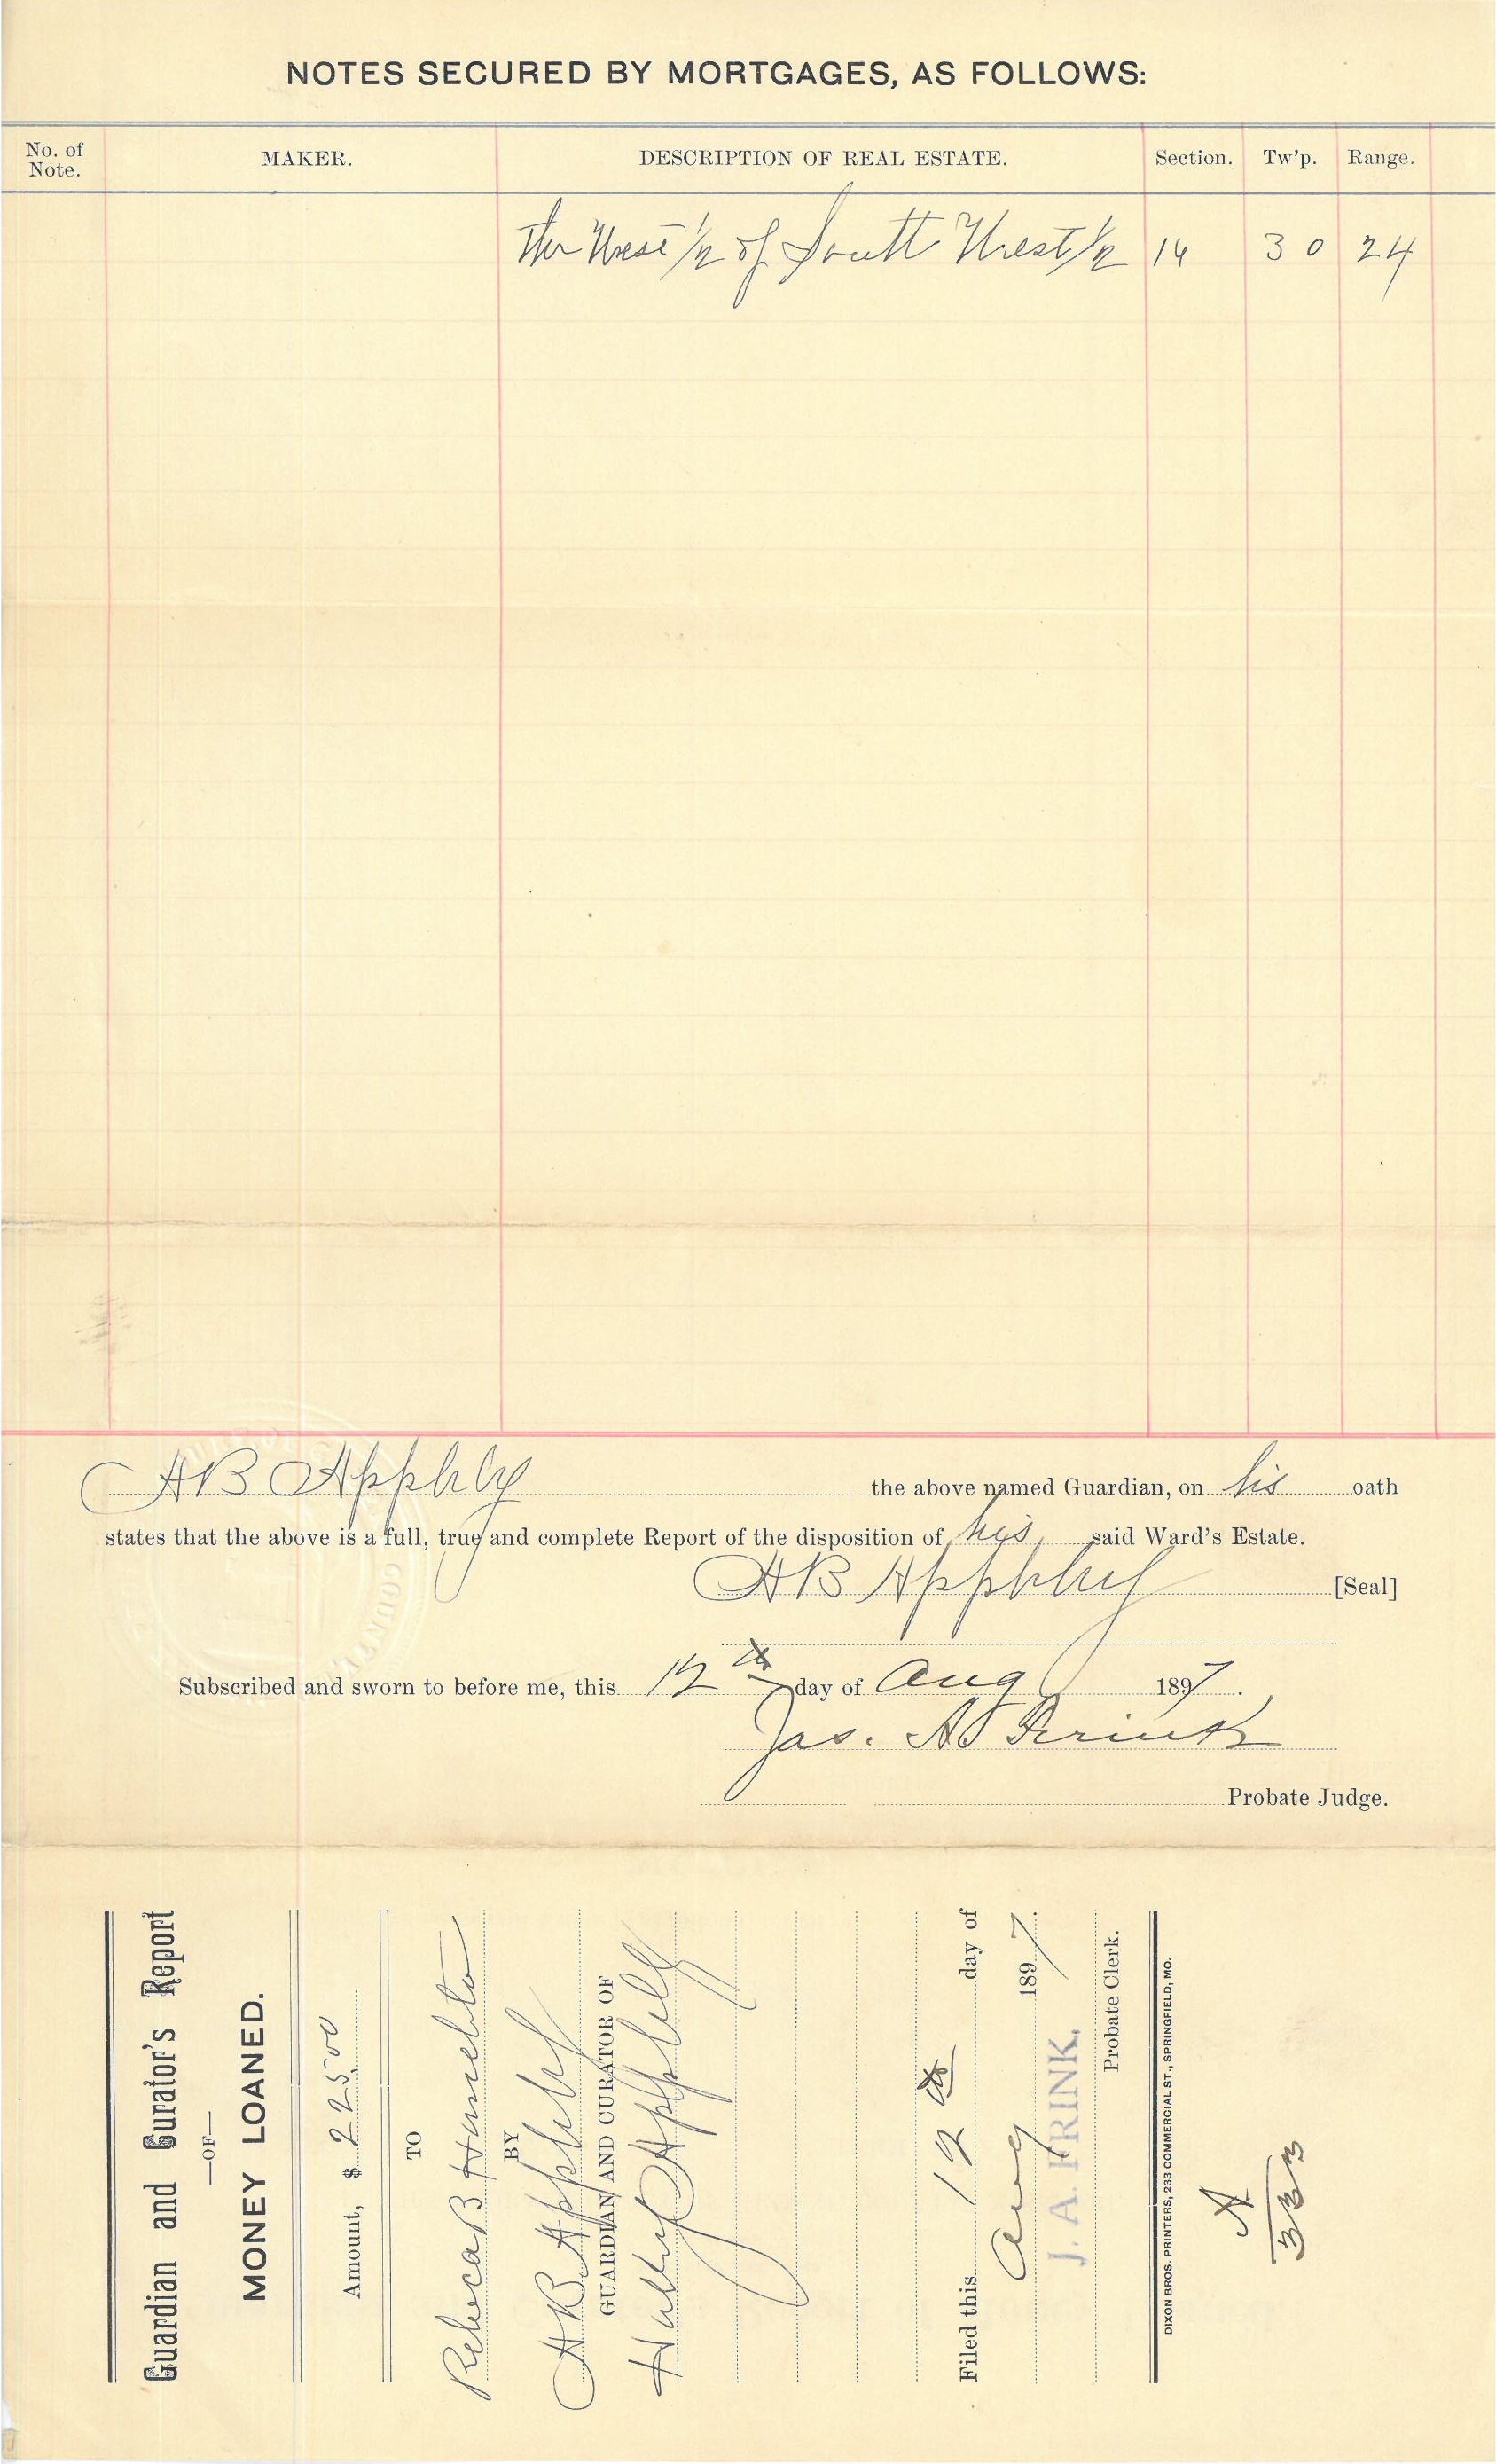 NOTES SECURED BY MORTGAGES, AS FOLLOWS:
No. of Note. MAKER. DESCRIPTION OF REAL ESTATE. Section. Tw'p. Range.
The West 1/2 of South West 1/2 14 30 24
AB Appleby the above named Guardian, on his oath
states that the above is a full, true and complete Report of the disposition of his said Ward's Estate.
AB Appleby [Seal]
Subscribed and sworn to before me, this 12th day of Aug 1897.
Jas. A Frink
Probate Judge.
Guardian and Curator's Report
—OF—
MONEY LOANED.
Amount, $ 225.00
TO
Rebeca B
BY
AB Appleby
GUARDIAN AND CURATOR OF
Appleby
Filed this 12th day of
Aug 1897.
J. A. FRINK,
Probate Clerk.
DIXON BROS. PRINTERS, 233 COMMERCIAL ST., SPRINGFIELD, MO.
A
333